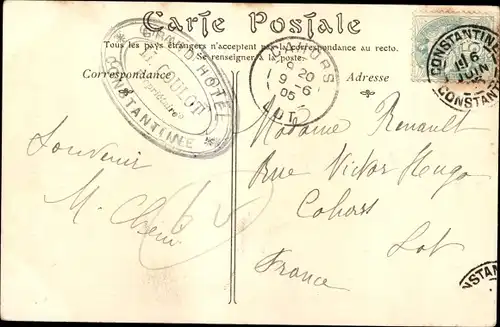 Carte Postale
Tous les pays étrangers n'acceptent pas la correspondance au recto.
Se renseigner à la poste.
Correspondance
Adresse
GRAND HÔTEL
L. COULOT
propriétaire
CONSTANTINE
CAHORS
9 20
9 -6
05
LOT
CONSTANTINE
6
JUIN
CONSTANTINE
Souvenir
M.
Madame Renault
Rue Victor Hugo
Cahors
Lot
France